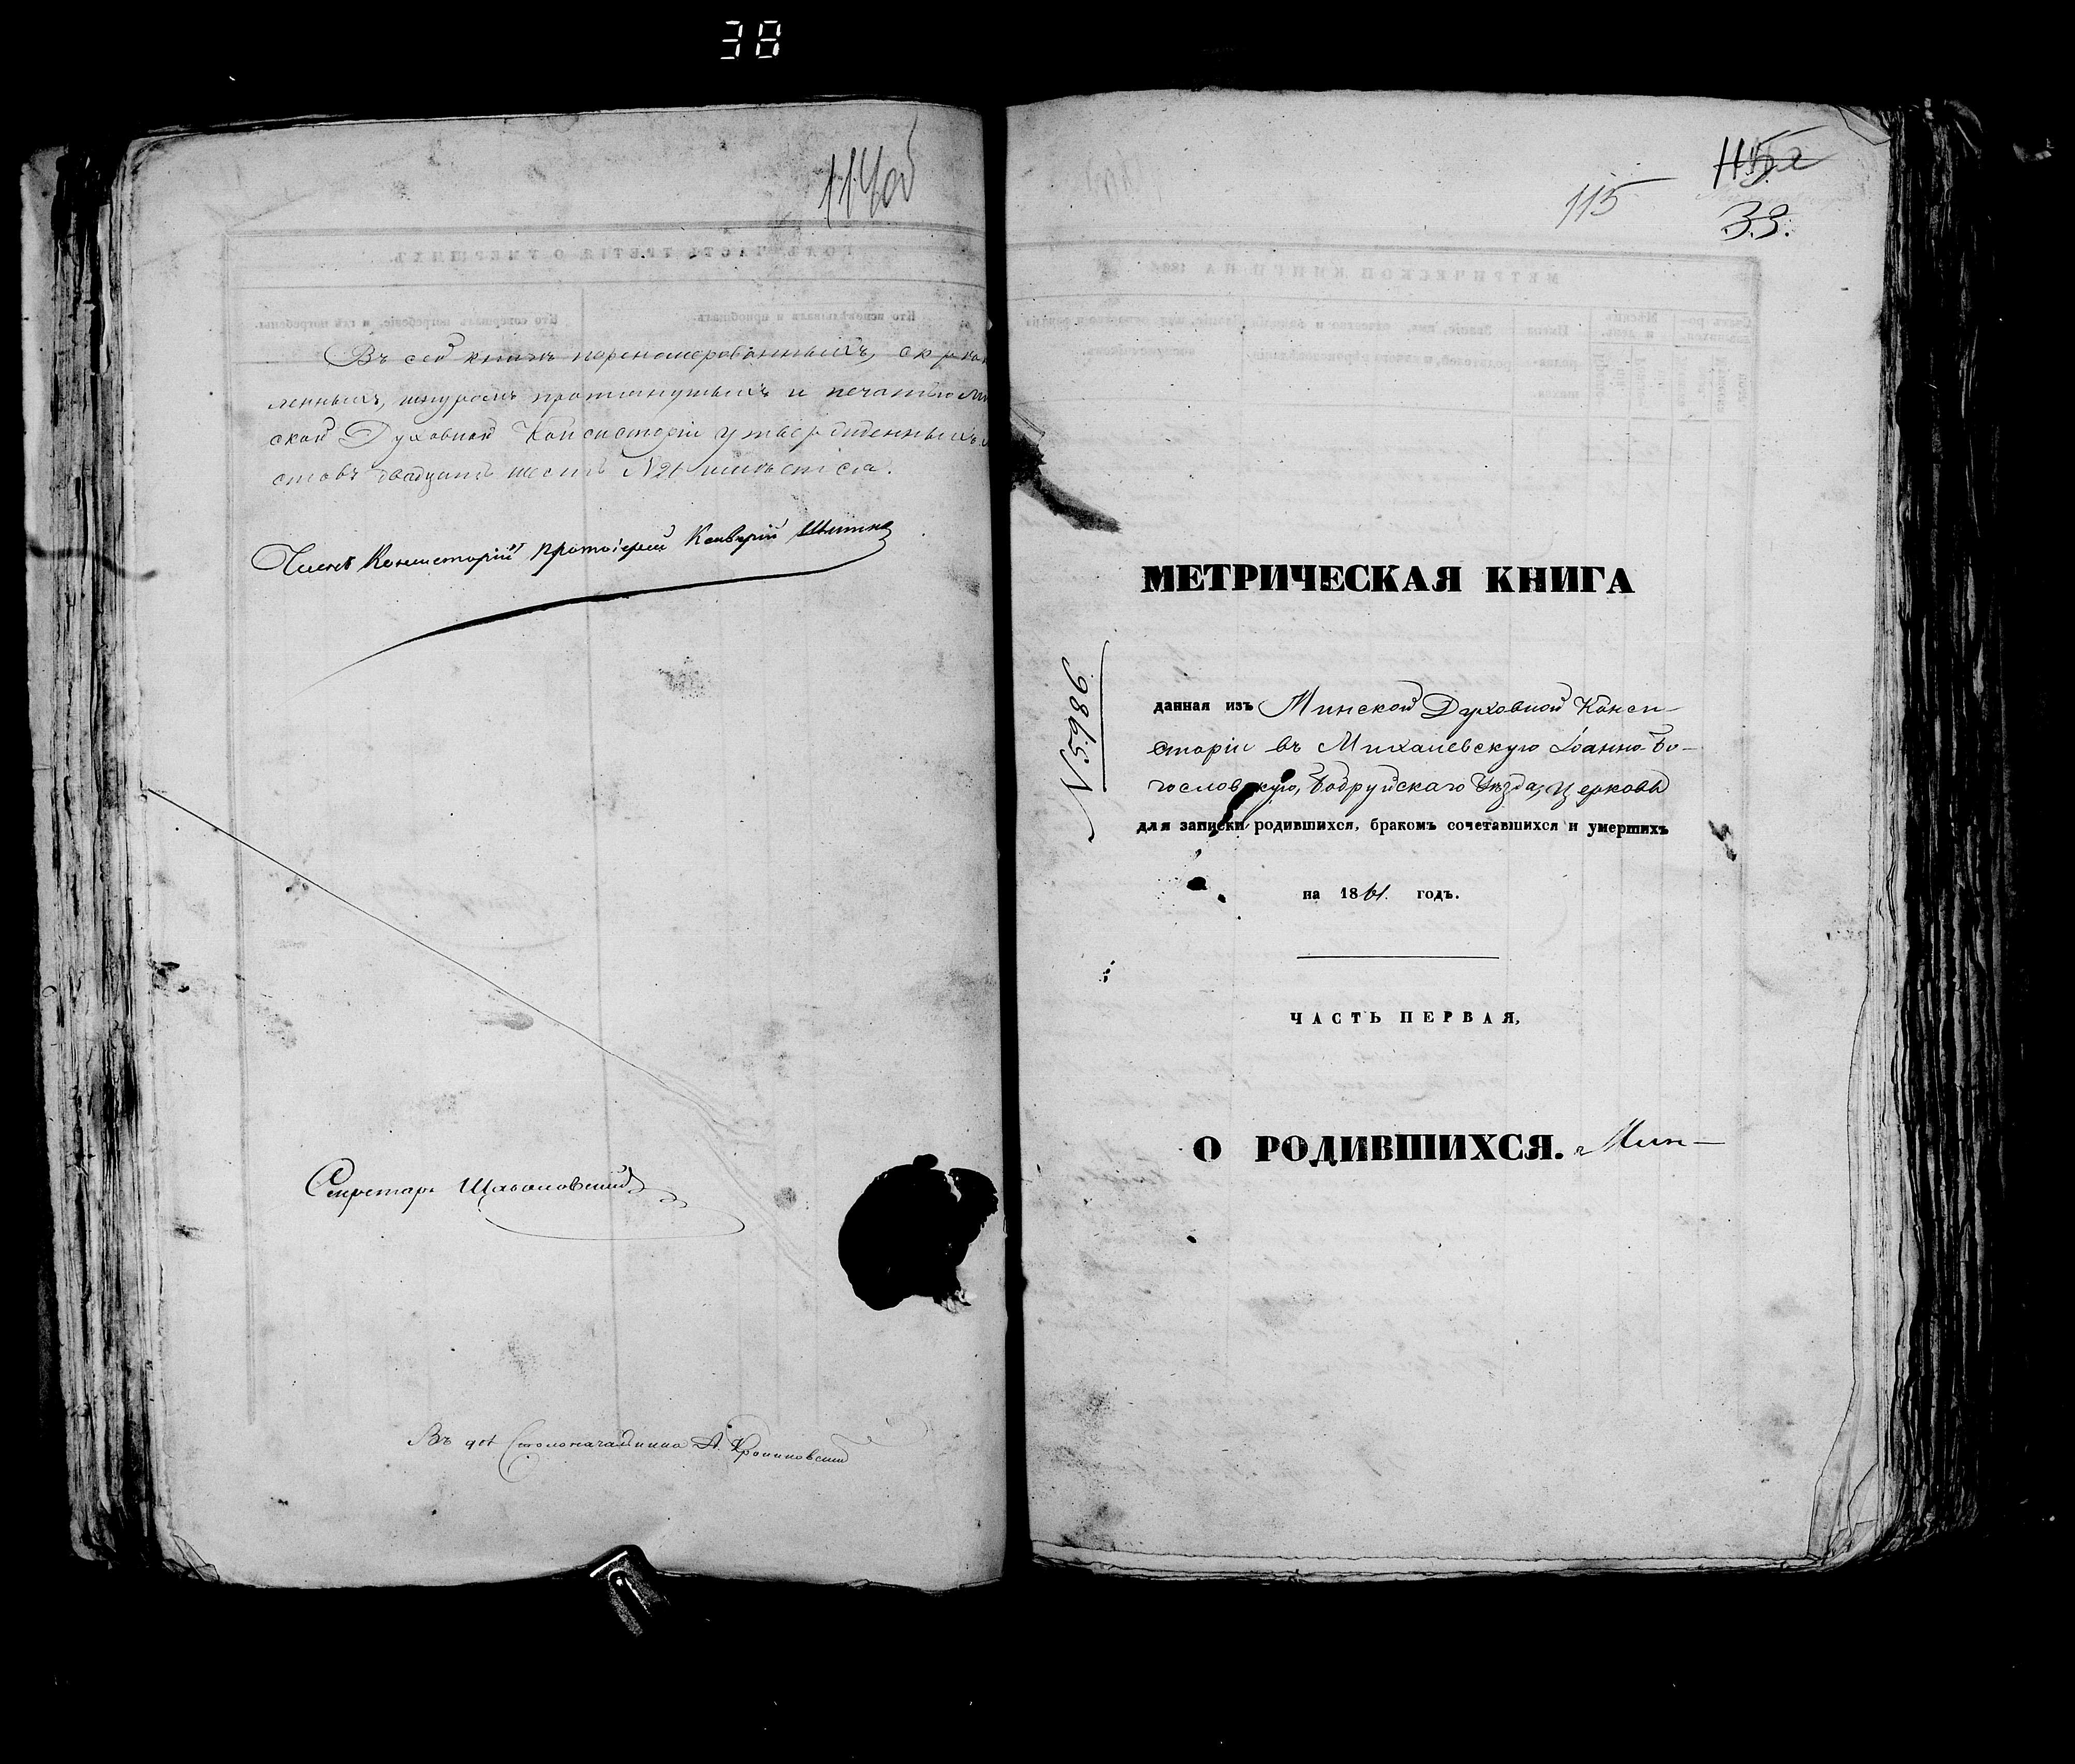 38
114об
Въ сей книгѣ перенумерованныхъ, скрѣп
ленныхъ, шнуромъ протянутыхъ и печатью Ми
ской Духовной Консисторіи утвержденныхъ
стовъ двадцать шесть N 21 имѣется.
Членъ Консисторіи Протоіерей Ксаверій
Секретарь
Въ Столоначальника А.
115
33.
МЕТРИЧЕСКАЯ КНИГА
N 5986
данная изъ Минской Духовной Конси-
сторіи въ Михалевскую Іоанно-Бо-
гословскую, Бобруйскаго Уѣзда, церковь
для записки родившихся, бракомъ сочетавшихся и умершихъ
на 1861 годъ.
ЧАСТЬ ПЕРВАЯ,
О РОДИВШИХСЯ. Мин-